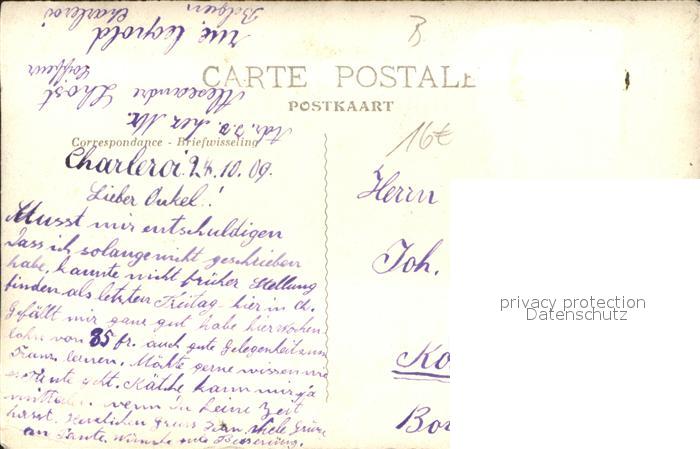 CARTE POSTALE
POSTKAART
Correspondance - Briefwisseling
Adr. J. B. chez Mr.
Alexandre Lhost
Coiffeur
rue Leopold
Charleroi
Belgien
16€
Charleroi 24.10.09.
Lieber Onkel!
Musst mir entschuldigen
dass ich solange nicht geschrieben
habe, kannte nicht früher Stellung
finden als letzten Freitag hier in Ch.
Gefällt mir ganz gut habe hier Wochen
lohn von 35 fr. auch gute Gelegenheit zum
Franz. lernen. Möchte gerne wissen wie
es Tante geht. Käthe kann mir ja
mitteilen wenn du keine Zeit
hasst. Herzlichen Gruss Viele Grüsse
an Tante. Wünsche gute Besserung.
Herrn
Joh.
Ko
Bo
privacy protection
Datenschutz